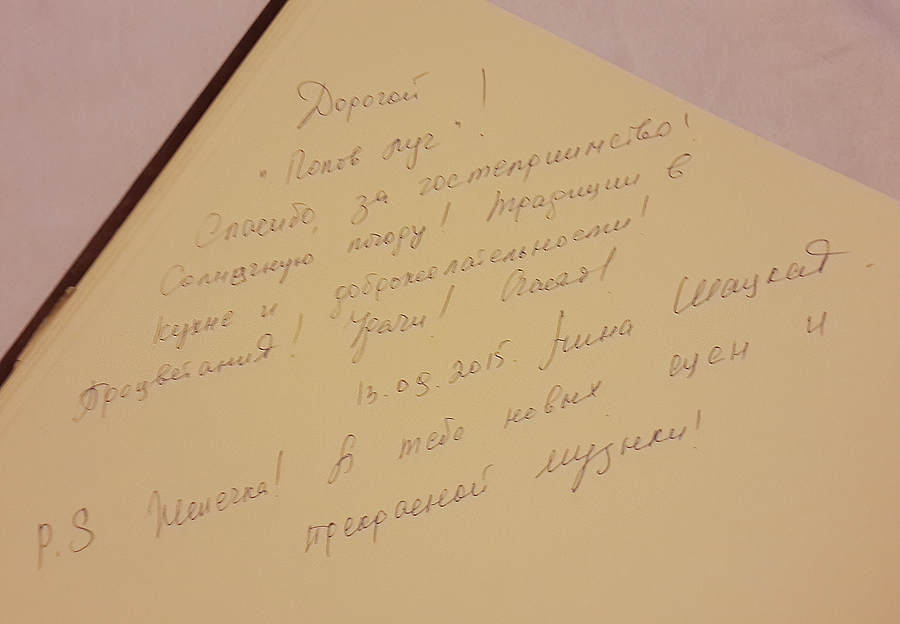 Дорогой !
"Попов луг".
Спасибо за гостеприимство!
Солнечную погоду! Традиции в
кухне и доброжелательности!
Процветания! Удачи!
13.09.2015. Нина Шацкая.
P.S Женечка! А тебе новых сцен и
прекрасной музыки!